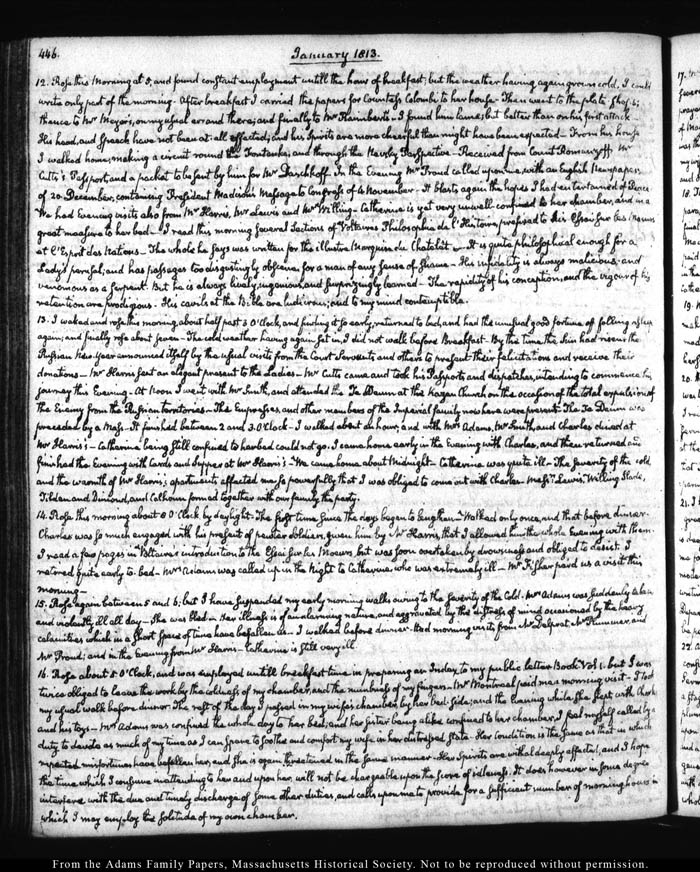 446.
January 1813.
12. Rose this Morning at 5, and found constant employment untill the hour of breakfast; but the weather having again grown cold, I could
write only part of the morning. After breakfast I carried the papers for Countess Colombi to her house. Then went to the plate shops;
thence to Mr Meyer's, on my usual errand there; and finally to Mr Raimbert's. I found him lame; but better than on his first attack.
His head, and Speech have not been at all affected; and his Spirits are more cheerful than might have been expected. From his house
I walked home, making a circuit round the Fontanka, and through the Nevsky Perspective. Received from Count Romanzoff, Mr
Cutts's Passport, and a packet to be sent by him for Mr Daschkoff. In the Evening Mr Proud called upon me with an English Newspaper
of 20. December, containing President Madison's Message to Congress of 4 November. It blasts again the hopes I had entertained of Peace.
We had Evening visits also from Mr Harris, Mr Lewis and Mr Willing. Catherine is yet very unwell confined to her chamber, and in a
great measure to her bed. I read this morning several Sections of Voltaire's Philosophie de l'Histoire prefixed to his Essai sur les Moeurs
et l'Esprit des Nations. The whole he says was written for the illustre Marquise du Chatelet. It is quite philosophical enough for a
Lady's perusal; and has passages too disgustingly obscene for a man of any sense of Shame. His infidelity is always malicious, and
venomous as a Serpent. But he is always lively, ingenious, and surprizingly learned. The rapidity of his conception, and the vigour of his
retention are prodigious. His cavils at the Bible are ludicrous; and to my mind contemptible.
13. I waked and rose this morning about half past 3 O'Clock, and finding it so early, returned to bed, and had the unusual good fortune of falling asleep
again; and finally rose about seven. The cold weather having again set in, I did not walk before Breakfast. By the time the sun had risen the
Russian New-Year announced itself by the usual visits from the Court Servants and others to present their felicitations and receive their
donations. Mr Harris sent an elegant present to the Ladies. Mr Cutts came and took his Passports and dispatches, intending to commence his
journey this Evening. At Noon I went with Mr Smith, and attended the Te Deum at the Kazan Church on the occasion of the total expulsion of
the Enemy from the Russian territories. The Empresses, and other members of the Imperial family now here were present. The Te Deum was
preceded by a Mass. It finished between 2 and 3 O'Clock. I walked about an hour; and with Mrs Adams, Mr Smith, and Charles dined at
Mr Harris's. Catherine being still confined to her bed could not go. I came home early in the Evening with Charles, and then returned and
finished the Evening with cards and supper at Mr Harris's. We came home about Midnight. Catherine was quite ill. The Severity of the cold
and the warmth of Mr Harris's apartments affected me so powerfully that I was obliged to come out with Charles. Messrs Lewis, Willing, Slade,
Tilden and Dimond, and Calhoun formed together with our family the party.
14. Rose this morning about 8 O'Clock by daylight. The first time since the days began to lengthen. Walked only once, and that before dinner.
Charles was so much engaged with his present of pewter soldiers, given him by Mr Harris, that I allowed him the whole Evening with them.
I read a few pages in Voltaire's introduction to the Essai sur les Moeurs but was soon overtaken by drowsiness and obliged to desist. I
retired quite early to bed. Mrs Adams was called up in the Night to Catherine, who was extremely ill. Mr Fisher paid us a visit this
morning.
15. Rose again between 5 and 6; but I have suspended my early morning walks owing to the severity of the Cold. Mrs Adams was suddenly taken
and violently ill all day. She was bled. Her illness is of an alarming nature, and aggravated by the distress of mind occasioned by the heavy
calamities which in a short space of time have befallen us. I walked before dinner. Had morning visits from Mr Delprat, Mr Plummer, and
Mr Proud; and in the Evening from Mr Harris. Catherine is still very ill.
16. Rose about 5 O'Clock, and was employed untill breakfast time in preparing an Index, to my public letter Book Vol 1. but I was
twice obliged to leave the work by the coldness of my chamber, and the numbness of my fingers. Mr Montreal paid me a morning visit. I took
my usual walk before dinner. The rest of the day I passed in my wife's chamber, by her bed-side; and the Evening while she slept with Charles
and his toys. Mrs Adams was confined the whole day to her bed; and her sister being alike confined to her chamber, I feel myself called by a
duty to devote as much of my time as I can spare to soothe and comfort my wife in her distressed state. Her condition is the same as that in which
repeated misfortunes have befallen her, and she is again threatened in the same manner. Her Spirits are withal deeply affected, and I hope
the time which I consume in attending to her and upon her, will not be chargeable upon the score of idleness. It does however in some degree
interfere with the due and timely discharge of some other duties, and calls upon me to provide for a sufficient number of morning hours in
which I may employ the solitude of my own chamber.
From the Adams Family Papers, Massachusetts Historical Society. Not to be reproduced without permission.